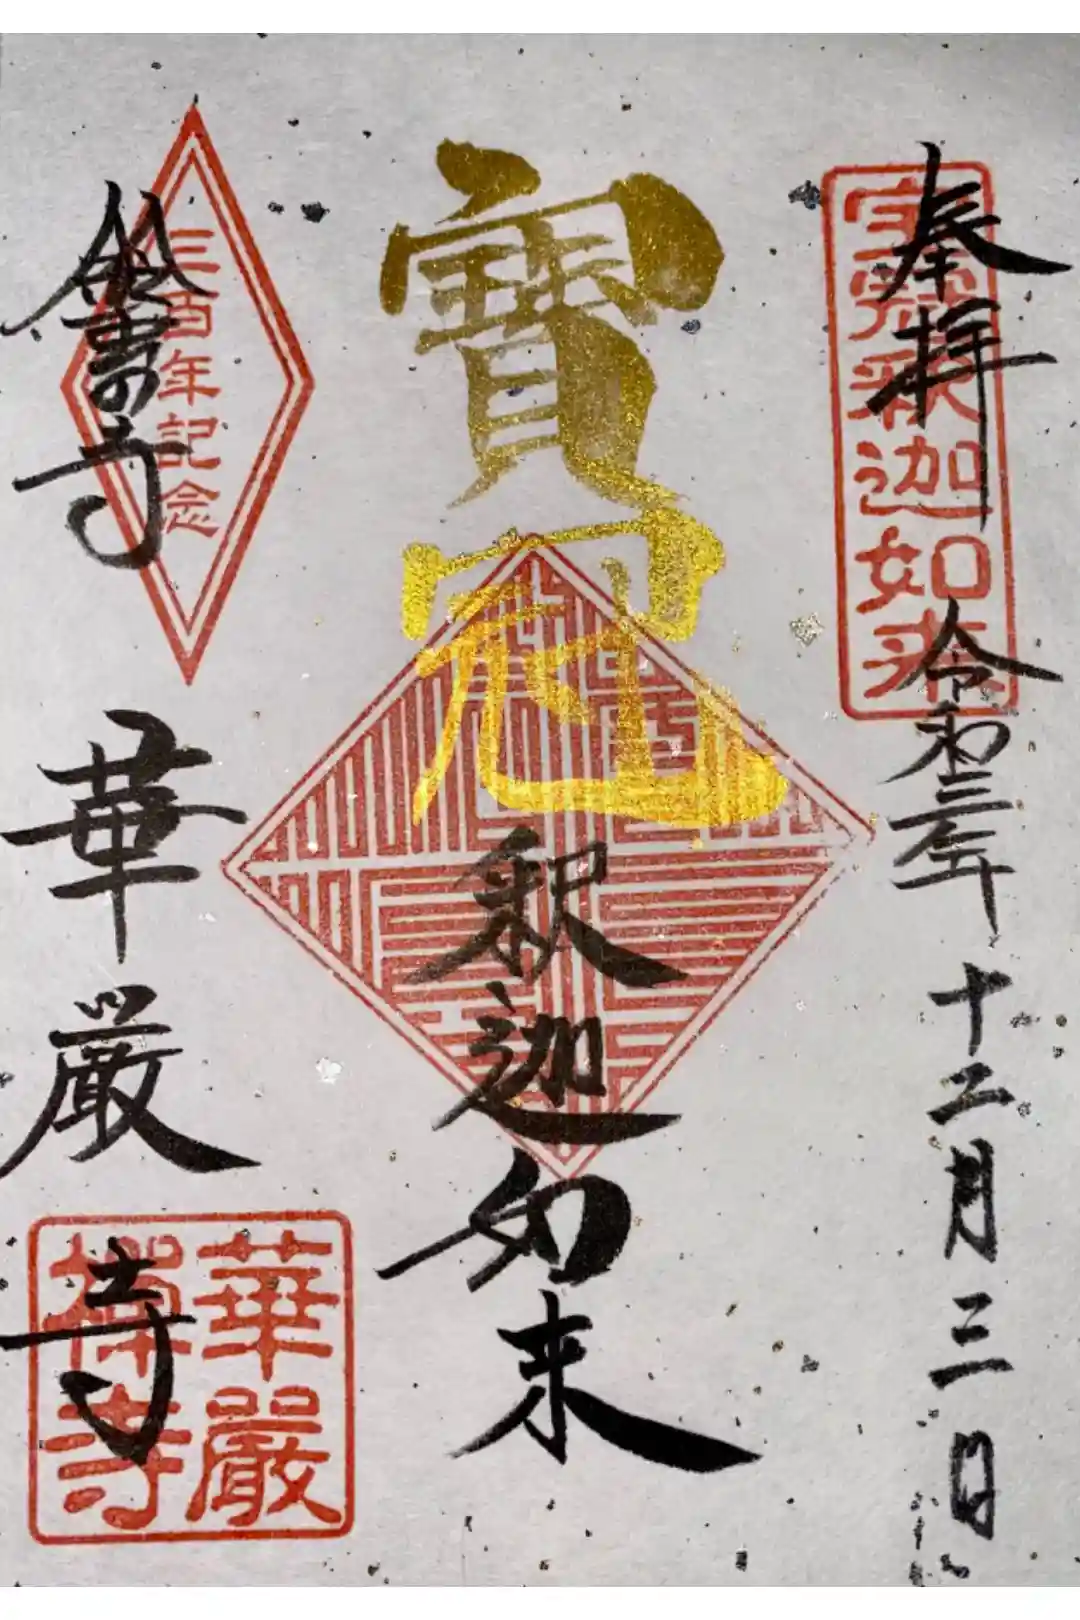 奉拝
令和三年十二月三日
宝冠釈迦如来
寶冠
釈迦如来
三百年記念
鈴虫の寺
華嚴寺
華嚴
禅寺